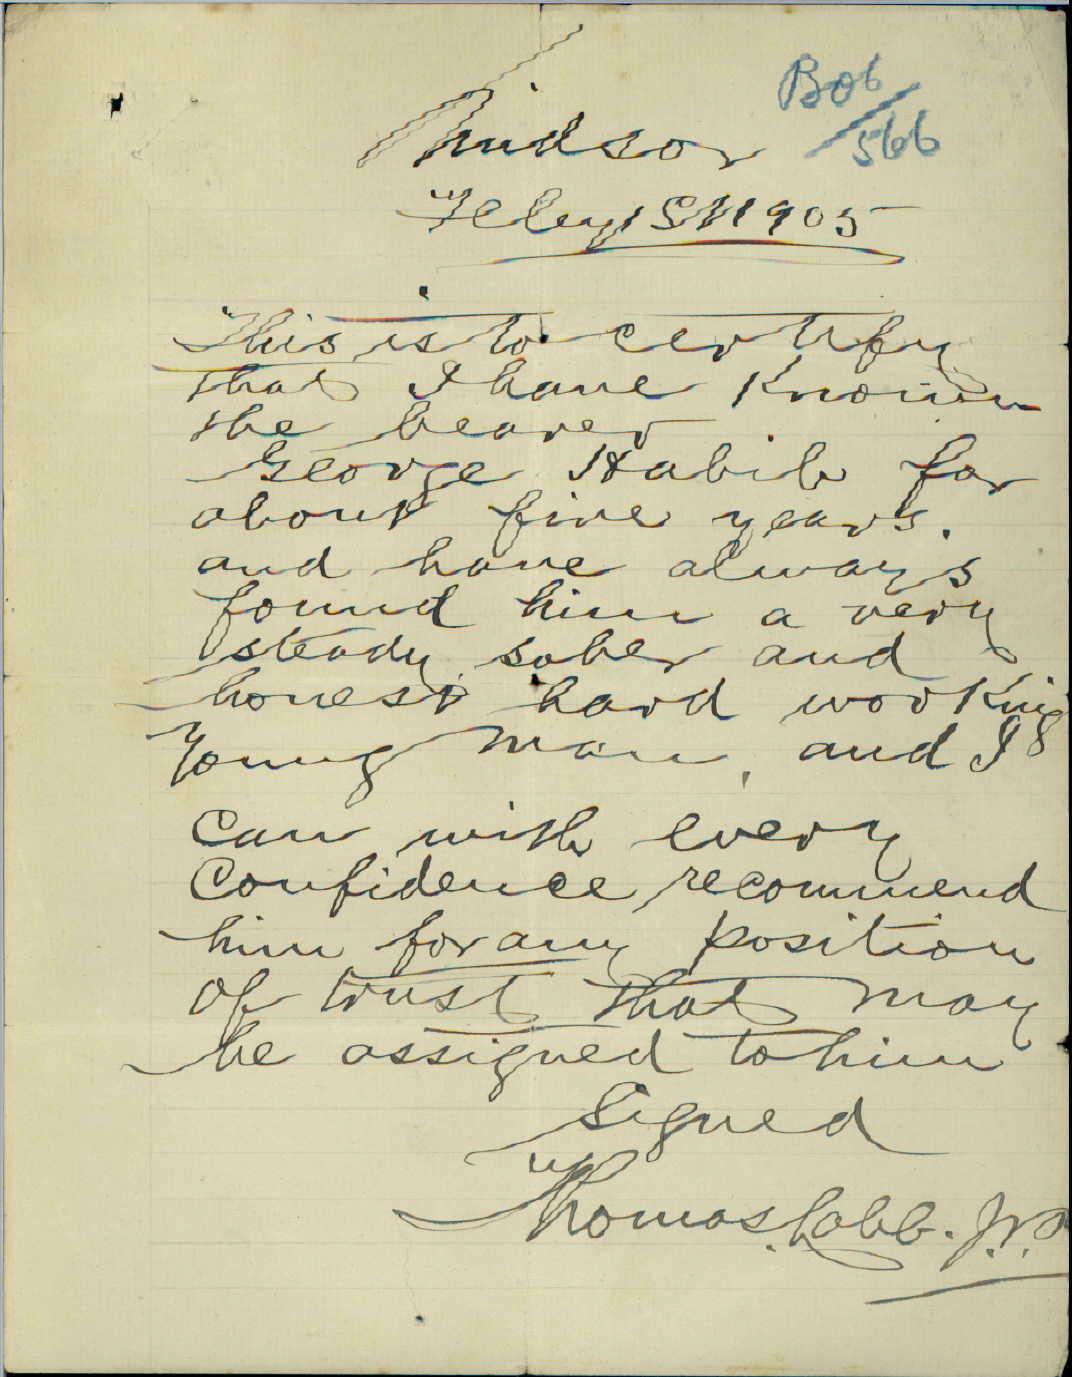 B06/566
Windsor
Feby 1st 1905
This is to certify
that I have Known
the bearer
George Habib for
about five years.
and have always
found him a very
steady sober and
honest hard working
Young man, and I
Can with every
Confidence recommend
him for any position
of trust that may
be assigned to him
Signed
Thomas Cobb. J.P.